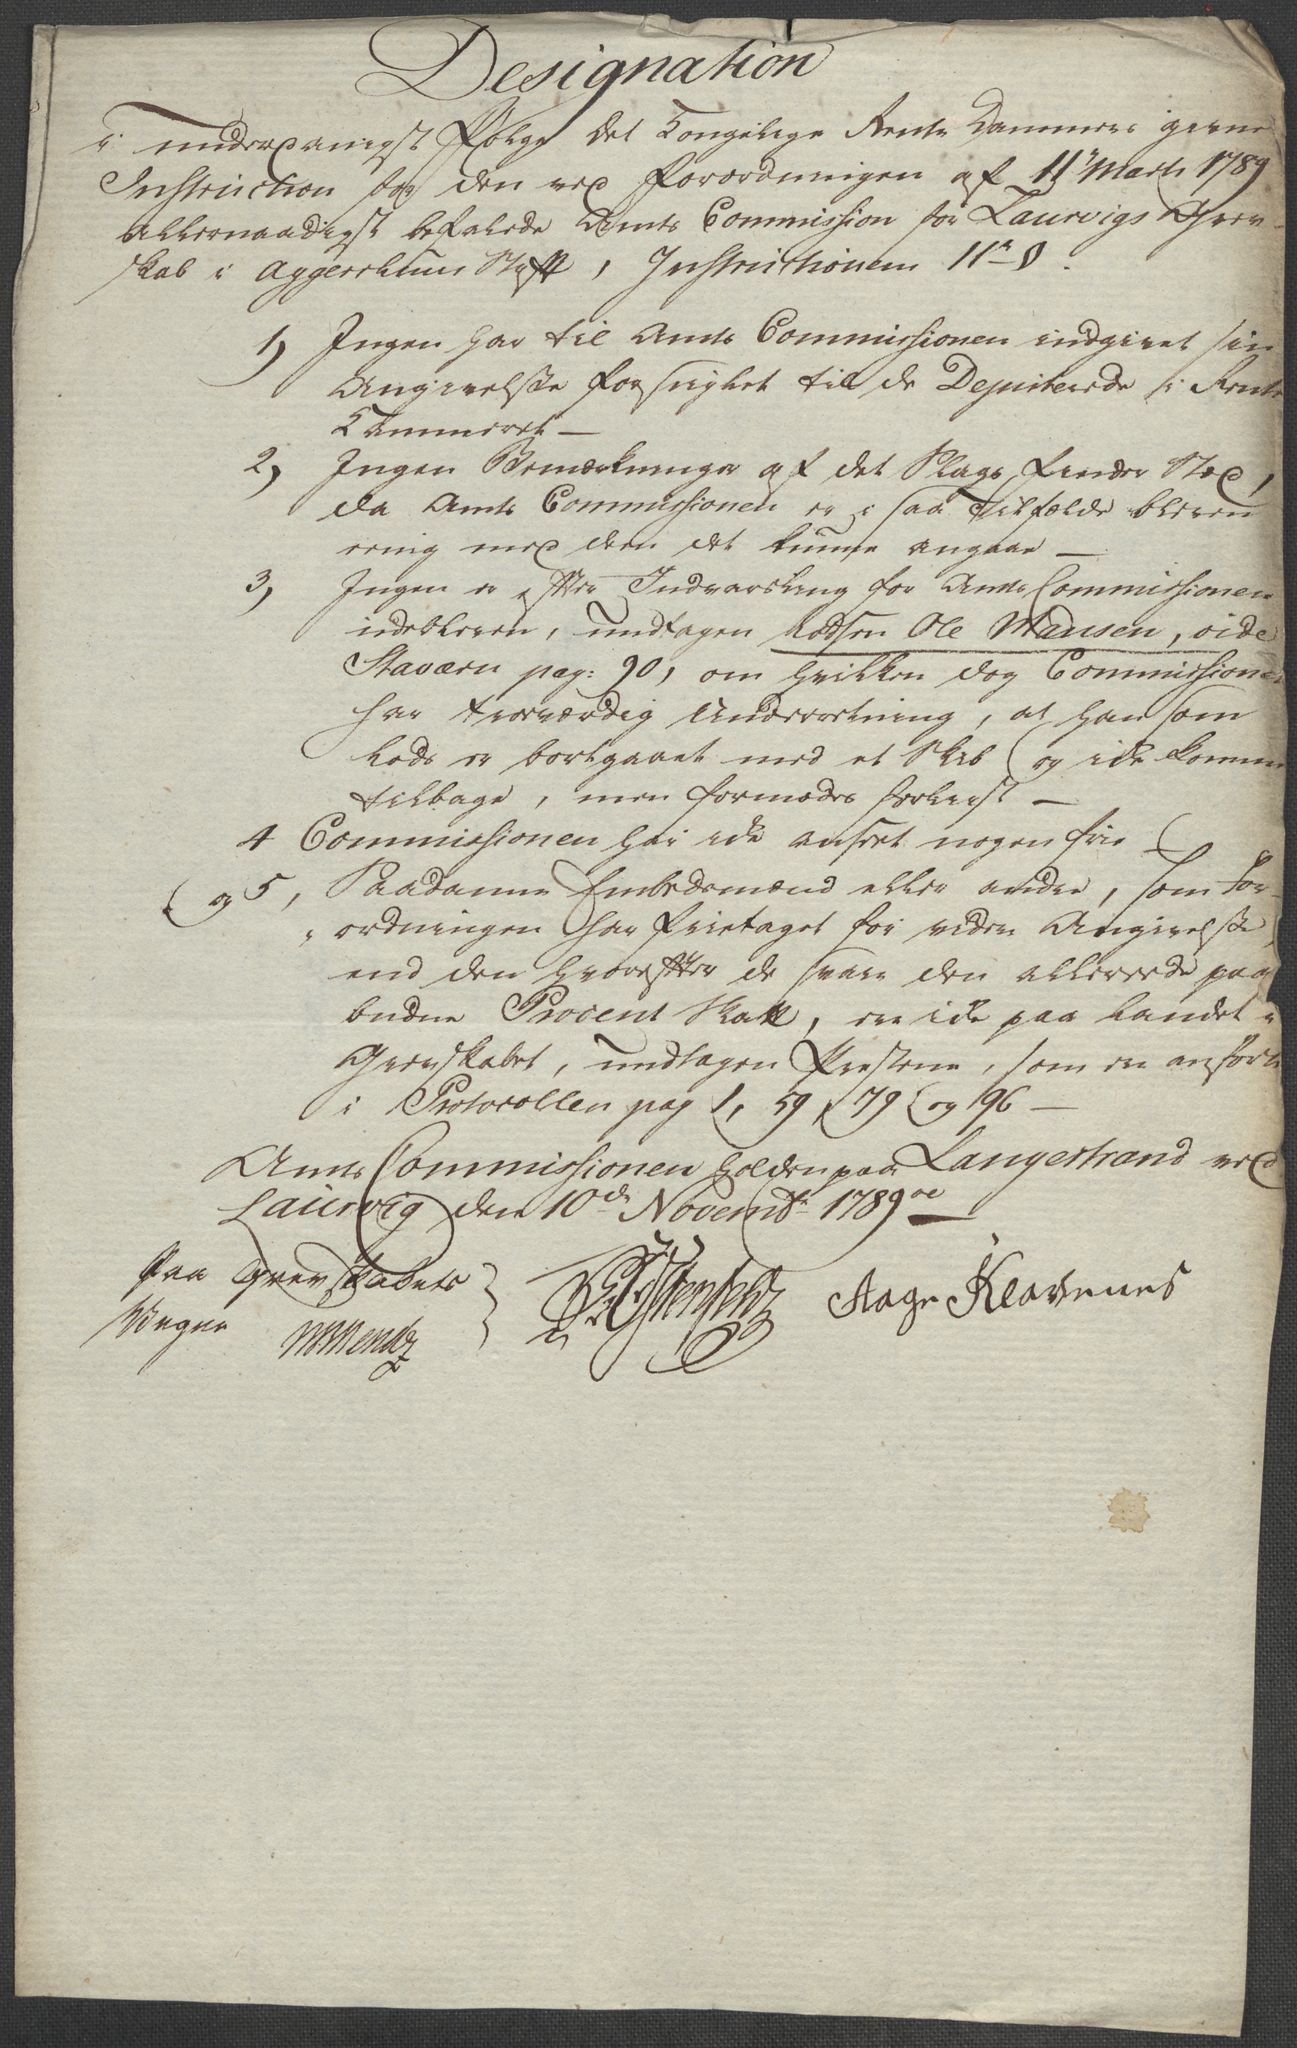 Designation
i underdanigst Følge det Kongelige Rente Cammers givne
Instruction for den ved Forordningen af 11te Marti 1789
allernaadigst befalede Amts Commission for Laurvigs Grev
skab i Aggershuus Stift, Instructionens 11te §.
1) Ingen har til Amts Commissionen indgivet sin
Angivelse forseiglet til de Deputerede i Rente
Kammeret —
2) Ingen Bemærkninger af det Slags finder Sted,
da Amts Commissionen er i saa Tilfælde bleven
eenig med dem det kunne angaae —
3) Ingen er efter Indvarsling for Amts Commissionen
udebleven, undtagen Lodsen Ole Hansen, vide
Staværn pag: 90, om hvilken dog Commissionen
har troeværdig Underretning, at han som
Lods er bortgaaet med et Skib og icke kommen
tilbage, men formodes forliist —
4 Commissionen har icke anseet nogen frie
og 5, Saadanne Embedsmænd eller andre, som For-
ordningen har fritaget for viden Angivelse
end den hvorefter de svare den allerede paa
budne Procent Skatt, ere icke paa Landet i
Grevskabet, undtagen Præsterne, som ere anførte
i Protocollen pag 1, 59, 79 og 96 —
Amts Commissionen holden paa Langestrand ved
Laurvig den 10de Novembr 1789
Paa Grevskabets
Vegne
Aage Klavenes